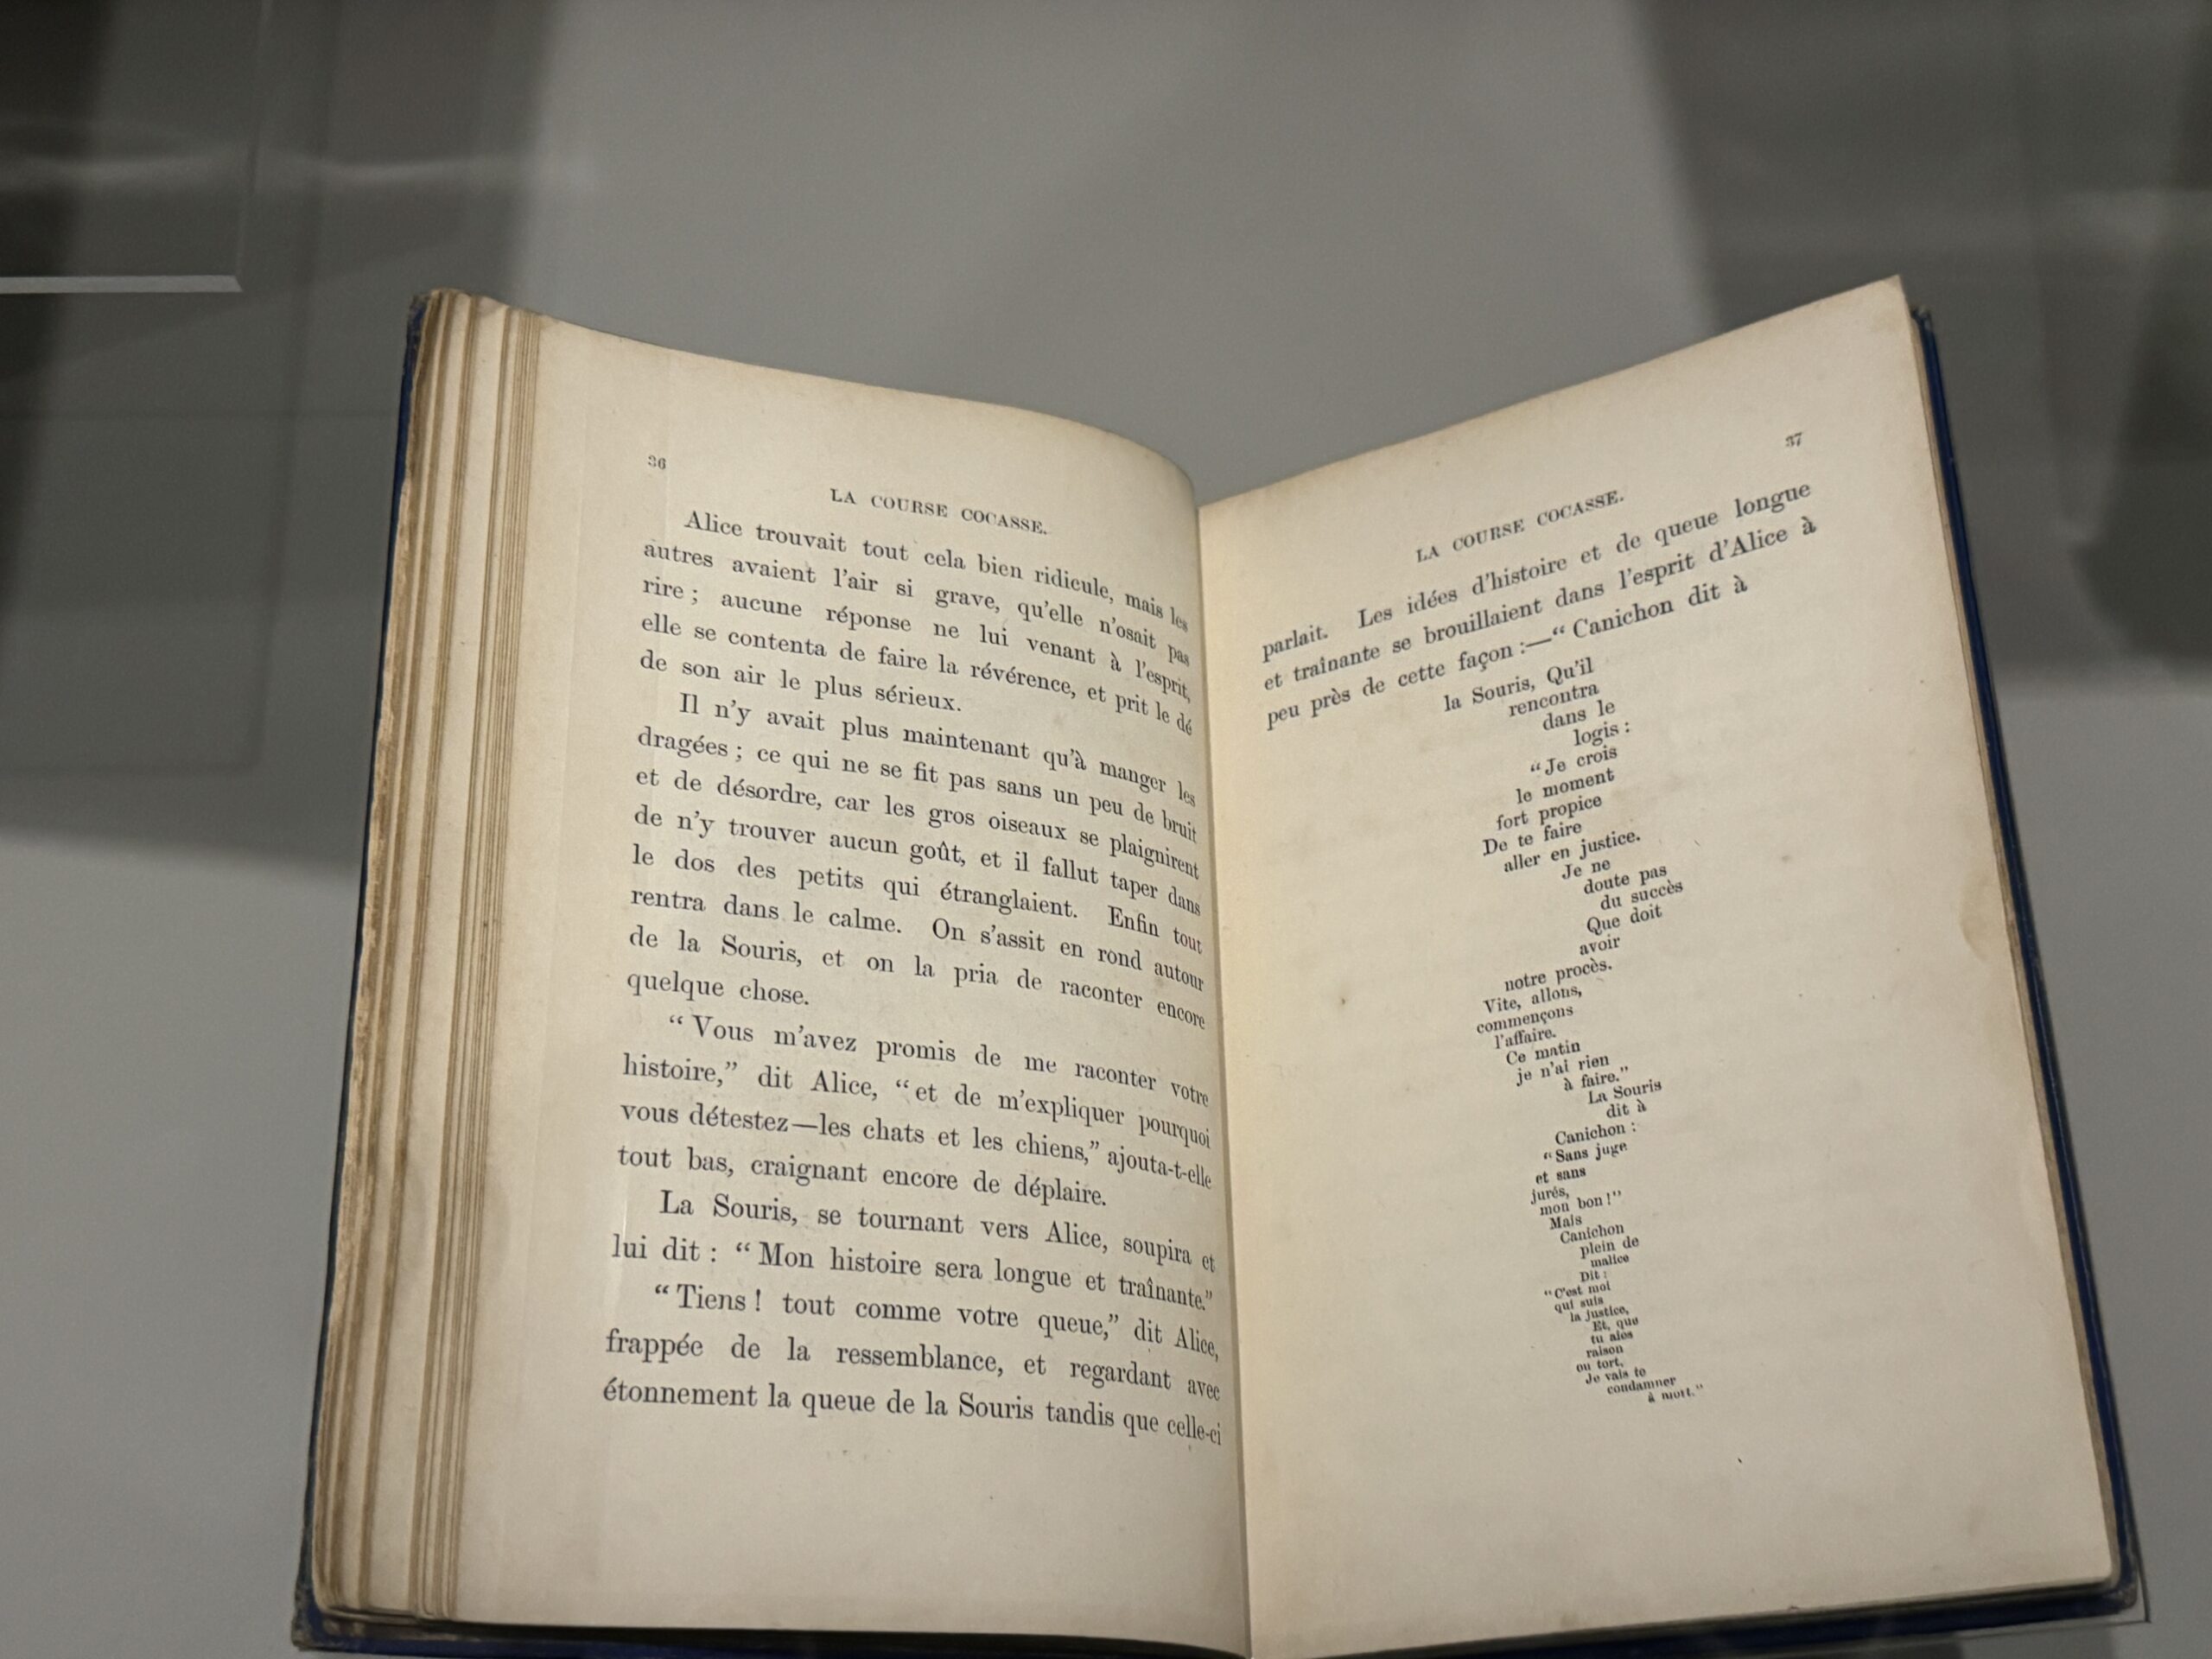 36
LA COURSE COCASSE.
Alice trouvait tout cela bien ridicule, mais les
autres avaient l'air si grave, qu'elle n'osait pas
rire ; aucune réponse ne lui venant à l'esprit,
elle se contenta de faire la révérence, et prit le dé
de son air le plus sérieux.
Il n'y avait plus maintenant qu'à manger les
dragées ; ce qui ne se fit pas sans un peu de bruit
et de désordre, car les gros oiseaux se plaignirent
de n'y trouver aucun goût, et il fallut taper dans
le dos des petits qui étranglaient. Enfin tout
rentra dans le calme. On s'assit en rond autour
de la Souris, et on la pria de raconter encore
quelque chose.
“ Vous m'avez promis de me raconter votre
histoire,” dit Alice, “ et de m'expliquer pourquoi
vous détestez—les chats et les chiens,” ajouta-t-elle
tout bas, craignant encore de déplaire.
La Souris, se tournant vers Alice, soupira et
lui dit : “ Mon histoire sera longue et traînante.”
“ Tiens ! tout comme votre queue,” dit Alice,
frappée de la ressemblance, et regardant avec
étonnement la queue de la Souris tandis que celle-ci
37
LA COURSE COCASSE.
parlait. Les idées d'histoire et de queue longue
et traînante se brouillaient dans l'esprit d'Alice à
peu près de cette façon :—“ Canichon dit à
la Souris, Qu'il
rencontra
dans le
logis :
“ Je crois
le moment
fort propice
De te faire
aller en justice.
Je ne
doute pas
du succès
Que doit
avoir
notre procès.
Vite, allons,
commençons
l'affaire.
Ce matin
je n'ai rien
à faire.”
La Souris
dit à
Canichon :
“ Sans juge
et sans
jurés,
mon bon !”
Mais
Canichon
plein de
malice
Dit :
“ C'est moi
qui suis
la justice,
Et, que
tu aies
raison
ou tort,
Je vais te
condamner
à mort.”